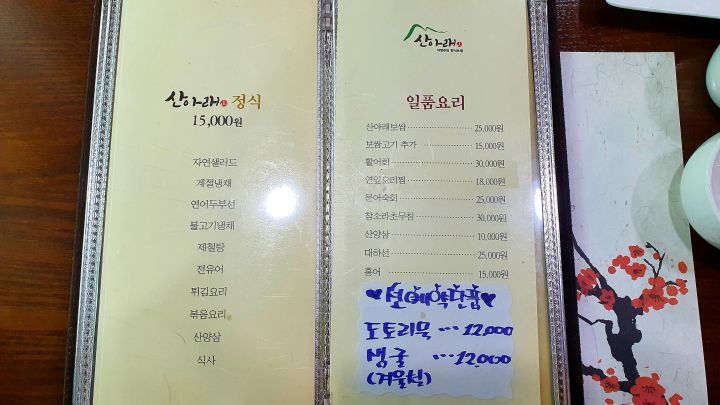 산아래 정식
15,000원
자연샐러드
계절냉채
연어두부선
불고기냉채
제철탕
전유어
튀김요리
볶음요리
산양삼
식사
산아래
일품요리
산아래보쌈 25,000원
보쌈고기 추가 15,000원
활어회 30,000원
연잎오리찜 18,000원
문어숙회 25,000원
참소라초무침 30,000원
산양삼 10,000원
대하선 25,000원
홍어 15,000원
♥선예약단품♥
도토리묵 ··· 12,000
생굴 ··· 12,000
(겨울철)